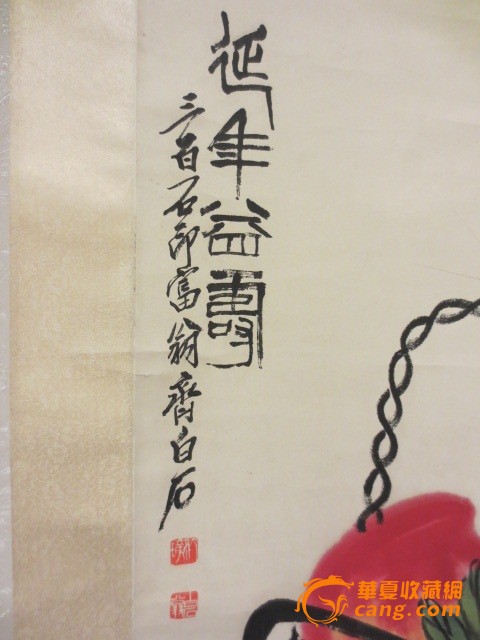 延年益壽
三百石印富翁齊白石
華夏收藏網
cang.com